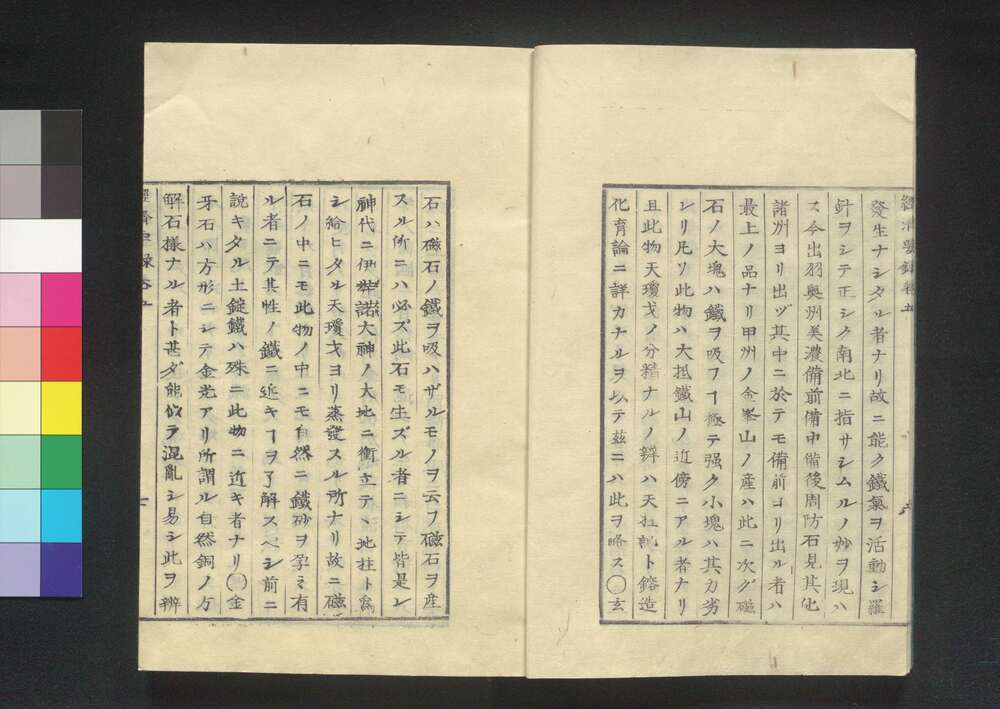 經濟要錄卷五
發生ナシタル者ナリ故ニ能ク鐵氣ヲ活動シ羅
針ヲシテ正シク南北ニ指サシムルノ妙ヲ現ハ
ス今出羽奥州美濃備前備中備後周防石見其他
諸州ヨリ出ヅ其中ニ於テモ備前ヨリ出ル者ハ
最上ノ品ナリ甲州ノ金峯山ノ産ハ此ニ次グ磁
石ノ大塊ハ鐵ヲ吸フヿ極テ强ク小塊ハ其力劣
レリ凡ソ此物ハ大抵鐵山ノ近傍ニアル者ナリ
且此物天瓊戈ノ分精ナルノ辨ハ天柱記ト鎔造
化育論ニ詳カナルヲ以テ茲ニハ此ヲ略ス〇玄
石ハ磁石ノ鐵ヲ吸ハザルモノヲ云フ磁石ヲ産
スル所ニハ必ズ此石モ生ズル者ニシテ皆是レ
神代ニ伊弉諾大神ノ大地ニ衝立テヽ地柱ト爲
シ給ヒタル天瓊戈ヨリ蒸發スル所ナリ故ニ磁
石ノ中ニモ此物ノ中ニモ自然ニ鐵砂ヲ孕ミ有
ル者ニテ其性ノ鐵ニ近キヿヲ了解スベシ前ニ
說キタル土錠鐵ハ殊ニ此物ニ近キ者ナリ〇金
牙石ハ方形ニシテ金光アリ所謂ル自然銅ノ方
解石樣ナル者ト甚ダ能似ヲ混亂シ易シ此ヲ辨